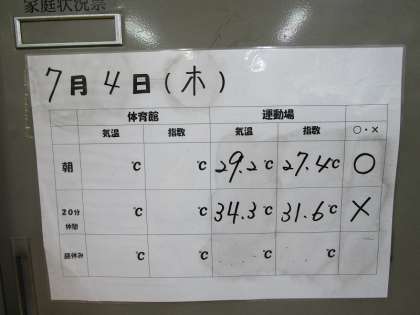 家庭状況票
7月4日(木)
体育館 運動場
気温 指数 気温 指数 ○・×
朝 ℃ ℃ 29.2℃ 27.4℃ ○
20分休間 ℃ ℃ 34.3℃ 31.6℃ ×
昼休み ℃ ℃ ℃ ℃